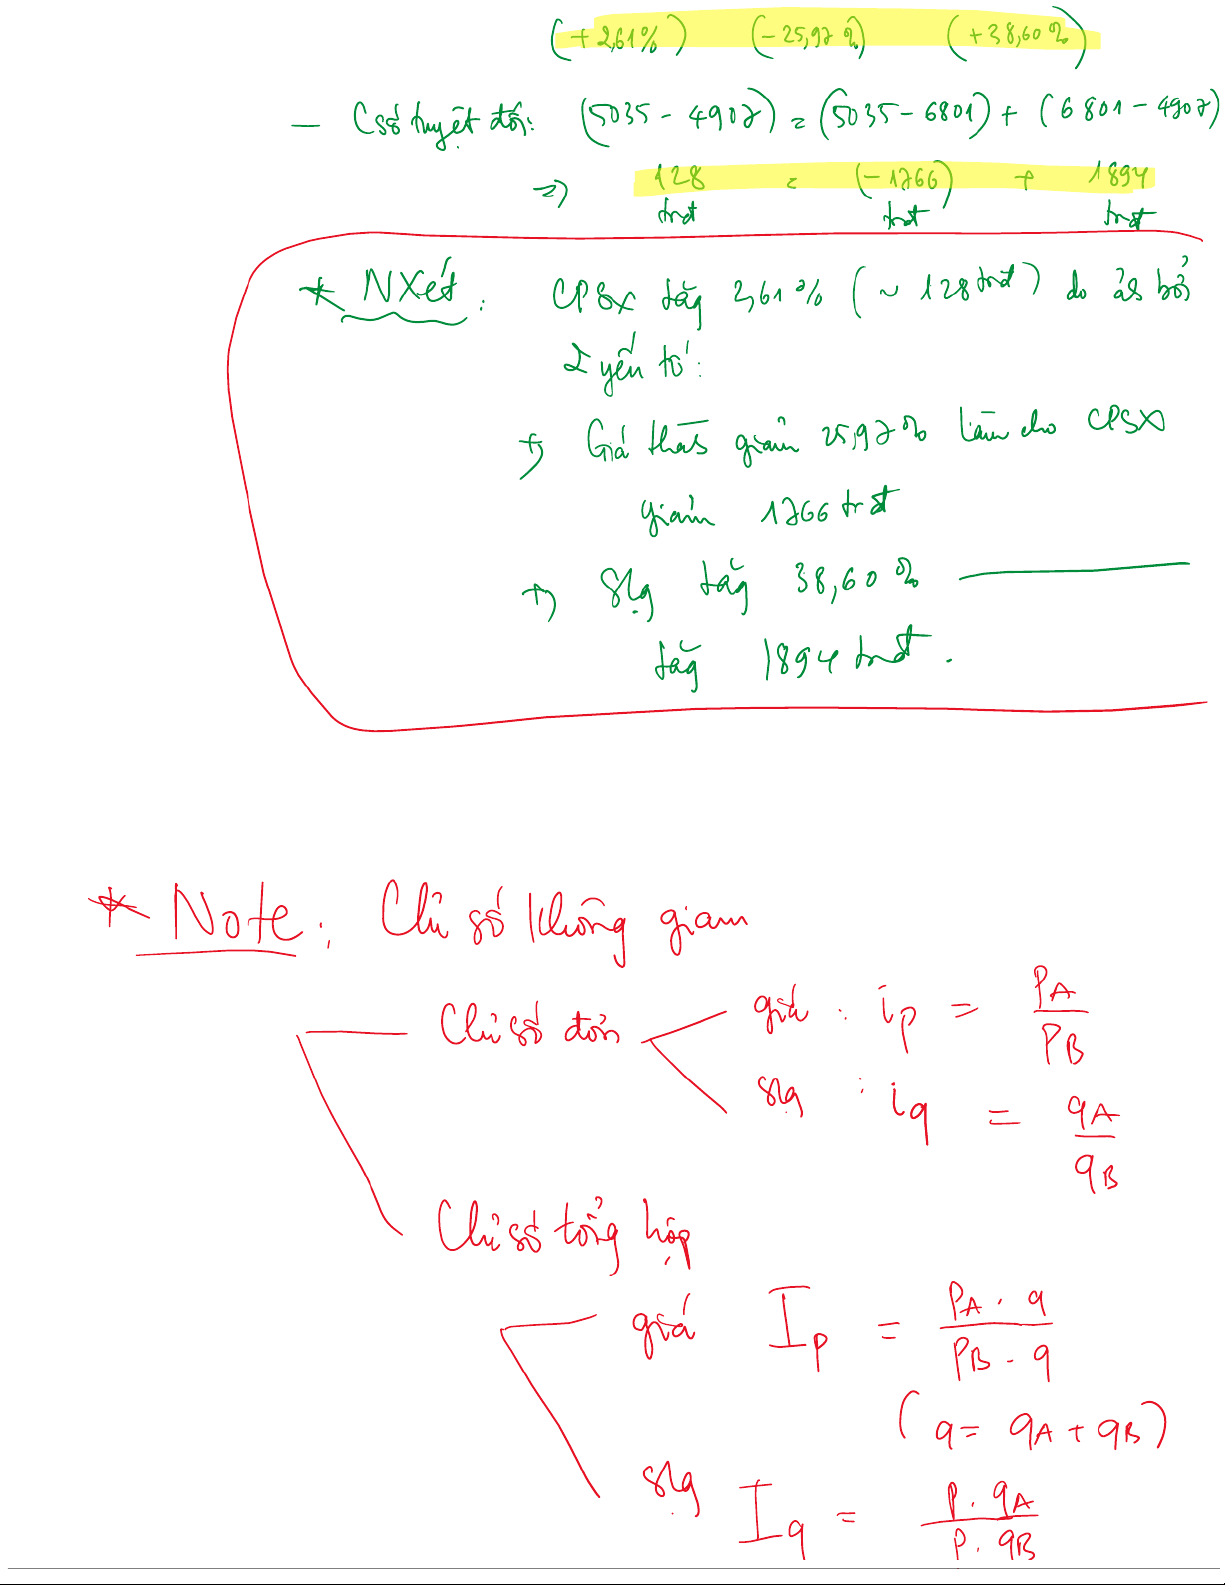 (+2,61%) (-25,97%) (+38,60%)
- Csố tuyệt đối: (5035 - 4907) = (5035 - 6801) + (6801 - 4907)
=> 128 = (-1766) + 1894
trđ trđ trđ
* NXét: CPSX tăg 2,61% (~ 128 trđ) do ảh bởi
2 yếu tố:
+) Giá thàh giảm 25,97% làm cho CPSX
giảm 1766 trđ
+) Slg tăg 38,60% ———
tăg 1894 trđ.
* Note: Chỉ số không gian
Chỉ số đơn
giá : ip = PA / PB
slg : iq = qA / qB
Chỉ số tổng hợp
giá Ip = PA . q / PB . q
(q = qA + qB)
slg Iq = P . qA / P . qB